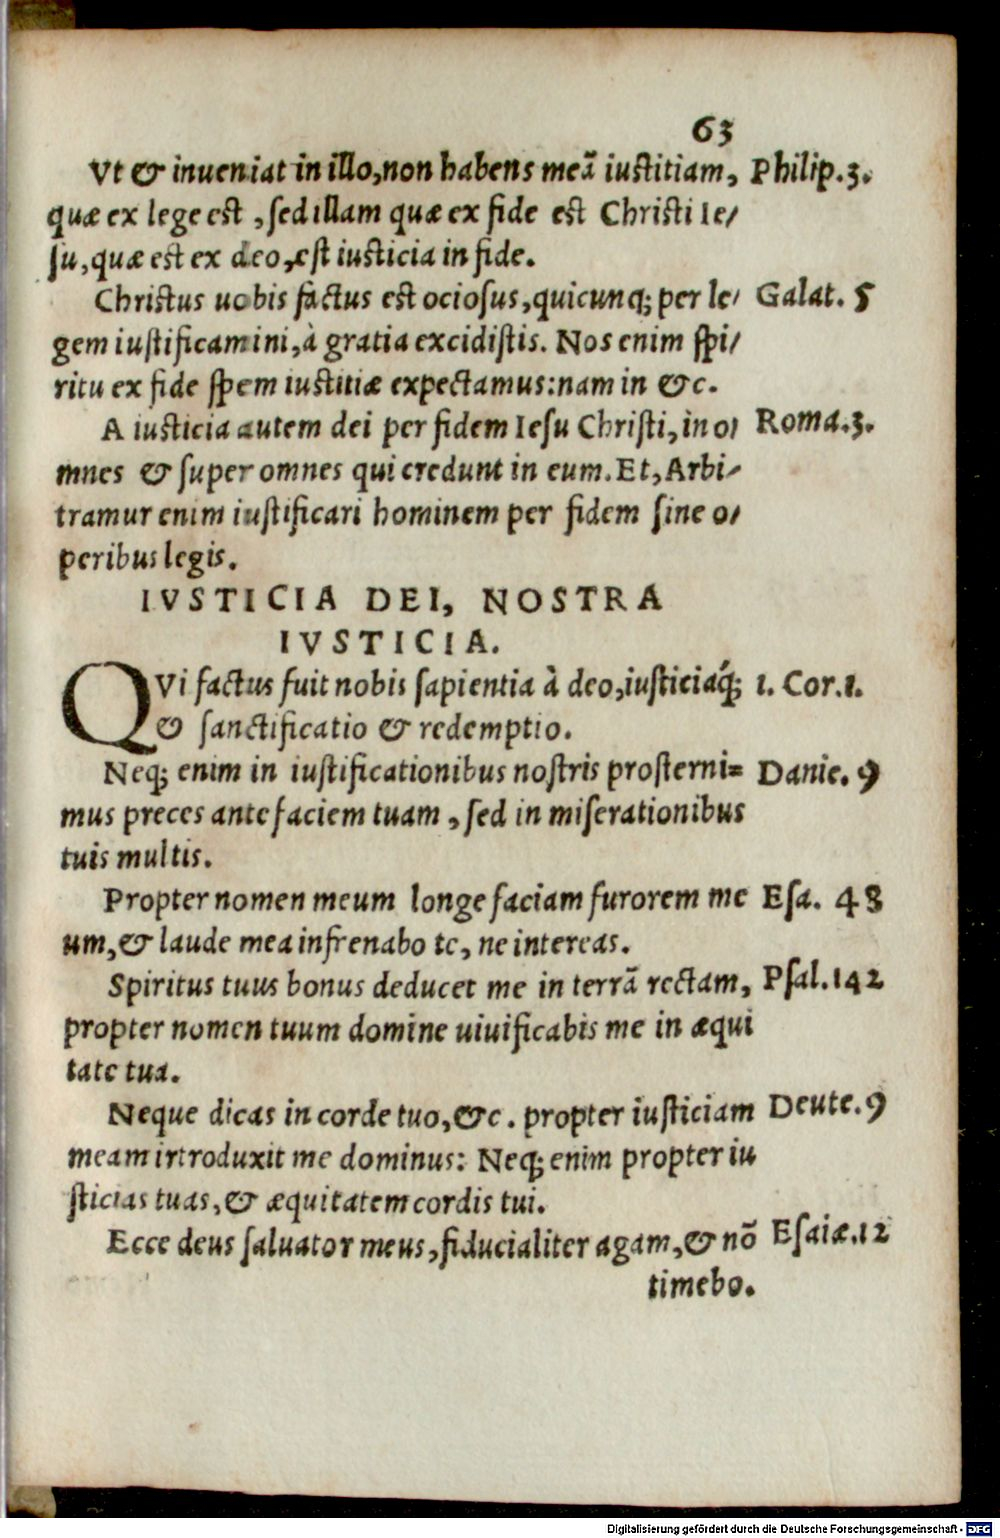 63
Vt & inueniat in illo, non habens meã iustitiam, Philip.3.
quæ ex lege est, sed illam quæ ex fide est Christi Ie/
su, quæ est ex deo, est iusticia in fide.
Christus uobis factus est ociosus, quicunq; per le/ Galat. 5
gem iustificamini, à gratia excidistis. Nos enim spi/
ritu ex fide spem iustitiæ expectamus: nam in &c.
A iusticia autem dei per fidem Iesu Christi, in o/ Roma.3.
mnes & super omnes qui credunt in eum. Et, Arbi/
tramur enim iustificari hominem per fidem sine o/
peribus legis.
IVSTICIA DEI, NOSTRA
IVSTICIA.
QVi factus fuit nobis sapientia à deo, iusticiaq́; 1. Cor.1.
& sanctificatio & redemptio.
Neq; enim in iustificationibus nostris prosterni= Danie. 9
mus preces ante faciem tuam, sed in miserationibus
tuis multis.
Propter nomen meum longe faciam furorem me Esa. 48
um, & laude mea infrenabo te, ne intereas.
Spiritus tuus bonus deducet me in terrã rectam, Psal.142
propter nomen tuum domine uiuificabis me in æqui
tate tua.
Neque dicas in corde tuo, &c. propter iusticiam Deute.9
meam introduxit me dominus: Neq; enim propter iu
sticias tuas, & æquitatem cordis tui.
Ecce deus saluator meus, fiducialiter agam, & nõ Esaiæ.12
timebo.
Digitalisierung gefördert durch die Deutsche Forschungsgemeinschaft - DFG